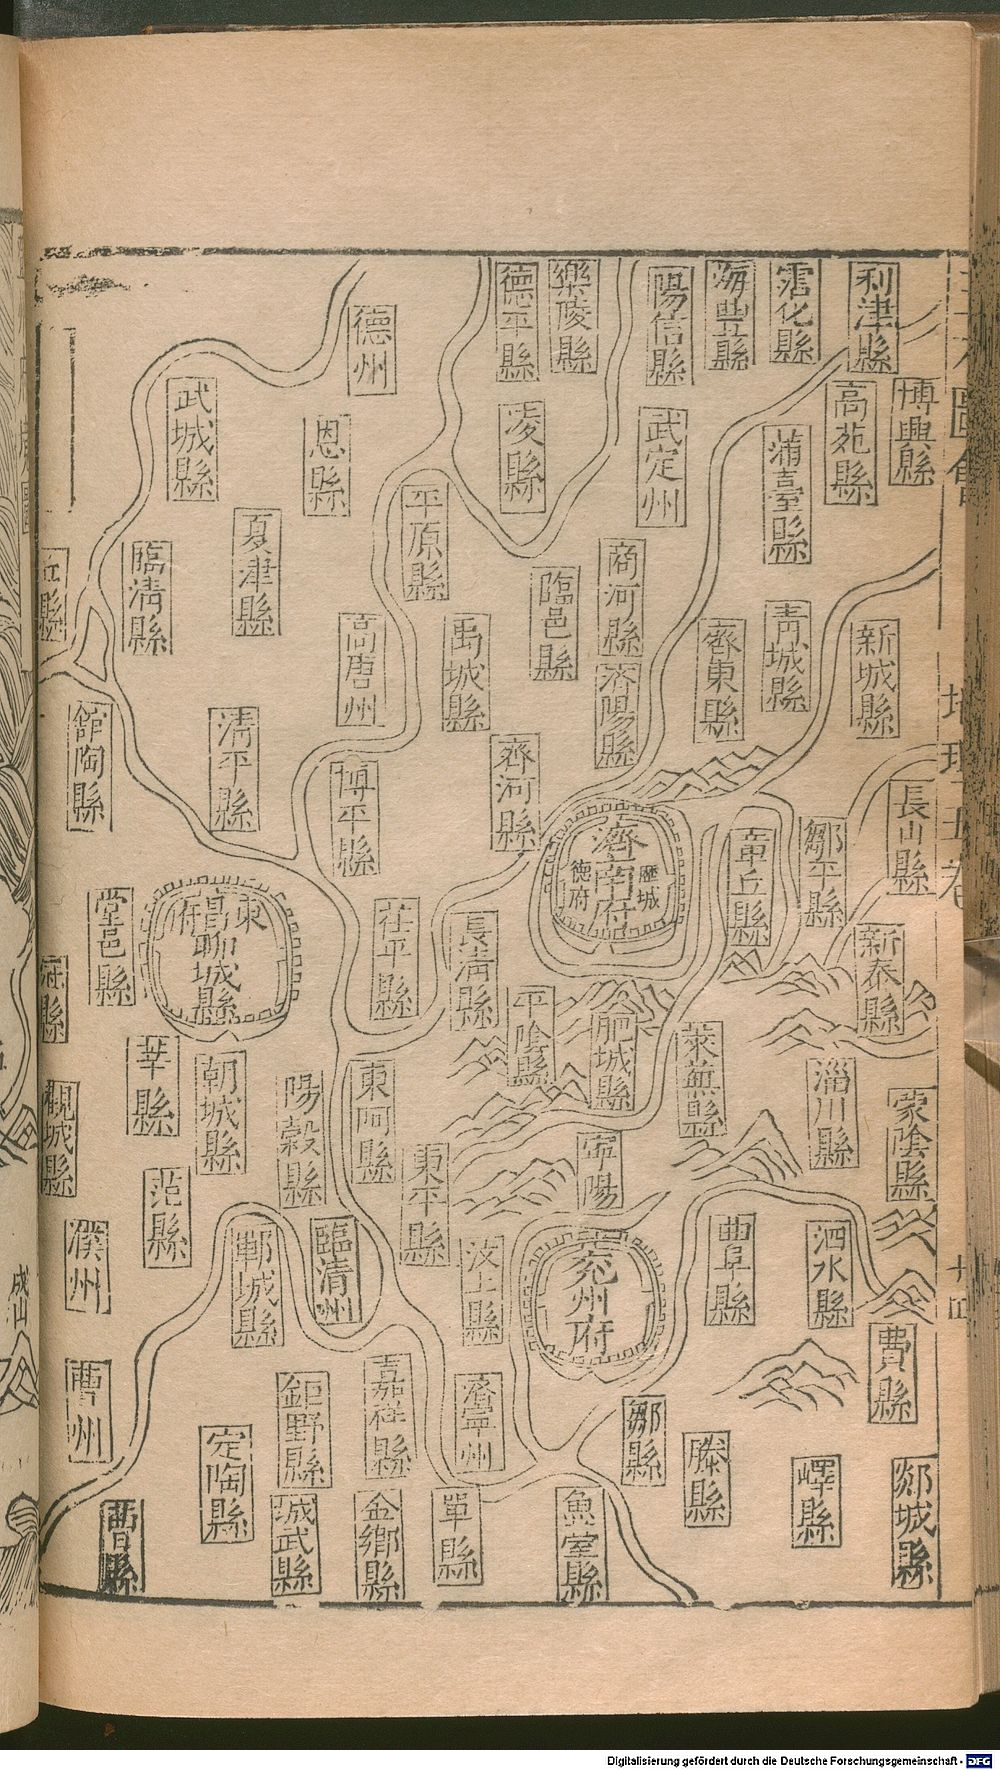 三才圖會
地理五卷
十四
利津縣
霑化縣
海豊縣
陽信縣
樂陵縣
德平縣
德州
博興縣
高苑縣
蒲臺縣
武定州
凌縣
恩縣
武城縣
新城縣
青城縣
齊東縣
商河縣
濟陽縣
臨邑縣
禹城縣
平原縣
高唐州
夏津縣
臨清縣
長山縣
鄒平縣
章丘縣
濟南府
歷城
德府
齊河縣
博平縣
清平縣
館陶縣
新泰縣
長清縣
茌平縣
東昌府
聊城縣
堂邑縣
冠縣
蒙陰縣
淄川縣
萊蕪縣
肥城縣
平陰縣
東阿縣
陽穀縣
朝城縣
莘縣
觀城縣
寧陽
東平縣
范縣
濮州
費縣
泗水縣
曲阜縣
兖州府
汶上縣
臨清州
鄆城縣
曹州
郯城縣
嶧縣
滕縣
鄒縣
濟寧州
嘉祥縣
鉅野縣
定陶縣
魚臺縣
單縣
金鄉縣
城武縣
曹縣
成山
Digitalisierung gefördert durch die Deutsche Forschungsgemeinschaft - DFG